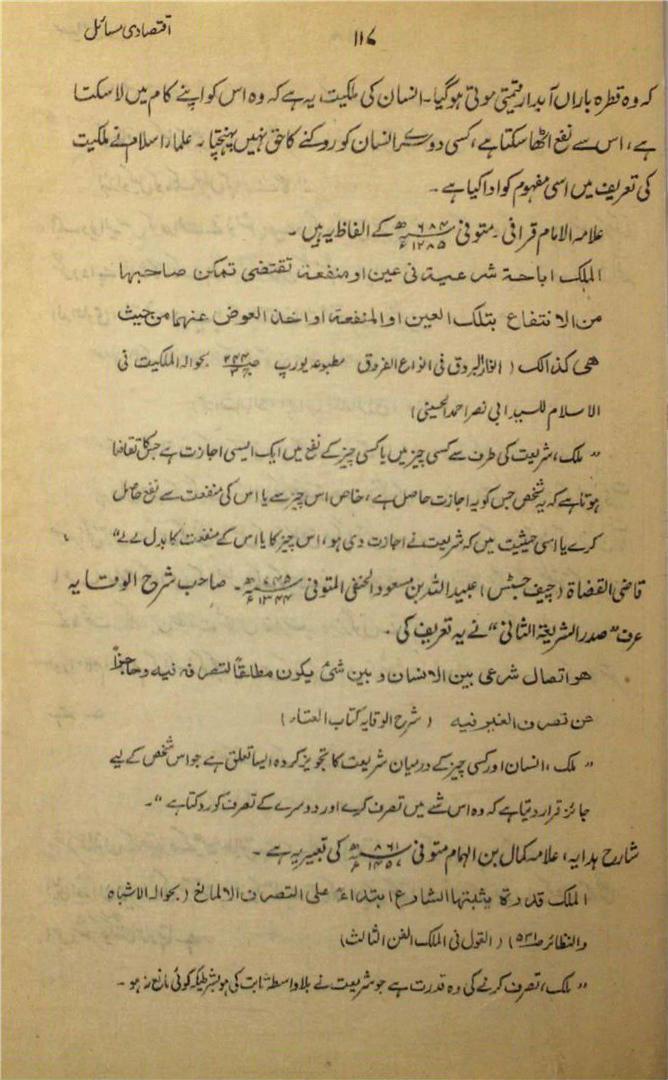 اقتصادی مسائل
۱۱۷
کہ وہ قطرہ باراں آبدار قیمتی موتی ہوگیا۔ انسان کی ملکیت یہ ہے کہ وہ اس کو اپنے کام میں لا سکتا
ہے، اس سے نفع اٹھا سکتا ہے، کسی دوسرے انسان کو روکنے کا حق نہیں پہنچتا۔ علماء اسلام نے ملکیت
کی تعریف میں اسی مفہوم کو ادا کیا ہے۔
علامہ الامام قرافی۔ متوفی ۶۸۴ھ ۱۲۸۵ء کے الفاظ یہ ہیں۔
الملک اباحۃ شرعیۃ فی عین او منفعۃ تقتضی تمکن صاحبہا
من الانتفاع بتلک العین او المنفعۃ او اخذ العوض عنہما من حیث
ھی کذالک (انوار البروق فی انواع الفروق مطبوعہ یورپ بحوالہ الملکیت فی
الاسلام للسید ابی نصر احمد الحسینی)
” ملک، شریعت کی طرف سے کسی چیز میں یا کسی چیز کے نفع میں ایک ایسی اجازت ہے جس کا تقاضا
ہوتا ہے کہ یہ شخص جس کو یہ اجازت حاصل ہے، خاص اس چیز سے یا اس کی منفعت سے نفع حاصل
کرے یا اسی حیثیت میں کہ شریعت نے اجازت دی ہو، اس چیز کا یا اس کے منفعت کا بدل لے لے“
قاضی القضاۃ (چیف جسٹس) عبیداللہ بن مسعود الحنفی المتوفی ۷۴۵ھ ۱۳۴۴ء۔ صاحب شرح الوقایہ
عرف ”صدر الشریعۃ الثانی“ نے یہ تعریف کی۔
ھو اتصال شرعی بین الانسان و بین شئ یکون مطلقاً لتصرفہ فیہ وحاجزاً
عن تصرف الغیر فیہ (شرح الوقایہ کتاب العتاء)
” ملک، انسان اور کسی چیز کے درمیان شریعت کا تجویز کردہ ایسا تعلق ہے جو اس شخص کے لیے
جائز قرار دیتا ہے کہ وہ اس شے میں تصرف کرے اور دوسرے کے تصرف کو روکتا ہے“۔
شارح ہدایہ، علامہ کمال بن الہمام متوفی ۸۶۱ھ ۱۴۵۶ء کی تعبیر یہ ہے۔
الملک قدرۃ یثبتہا الشارع ابتداءً علی التصرف الا لمانع (بحوالہ الاشباہ
والنظائر ص۵۳۱) (القول فی الملک الفن الثالث)
” ملک، تصرف کرنے کی وہ قدرت ہے جو شریعت نے بلاواسطہ ثابت کی ہو بشرطیکہ کوئی مانع نہ ہو۔